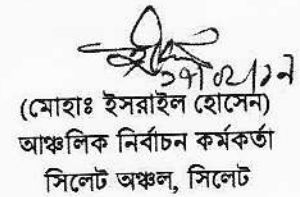 (মোহাঃ ইসরাইল হোসেন)
আঞ্চলিক নির্বাচন কর্মকর্তা
সিলেট অঞ্চল, সিলেট